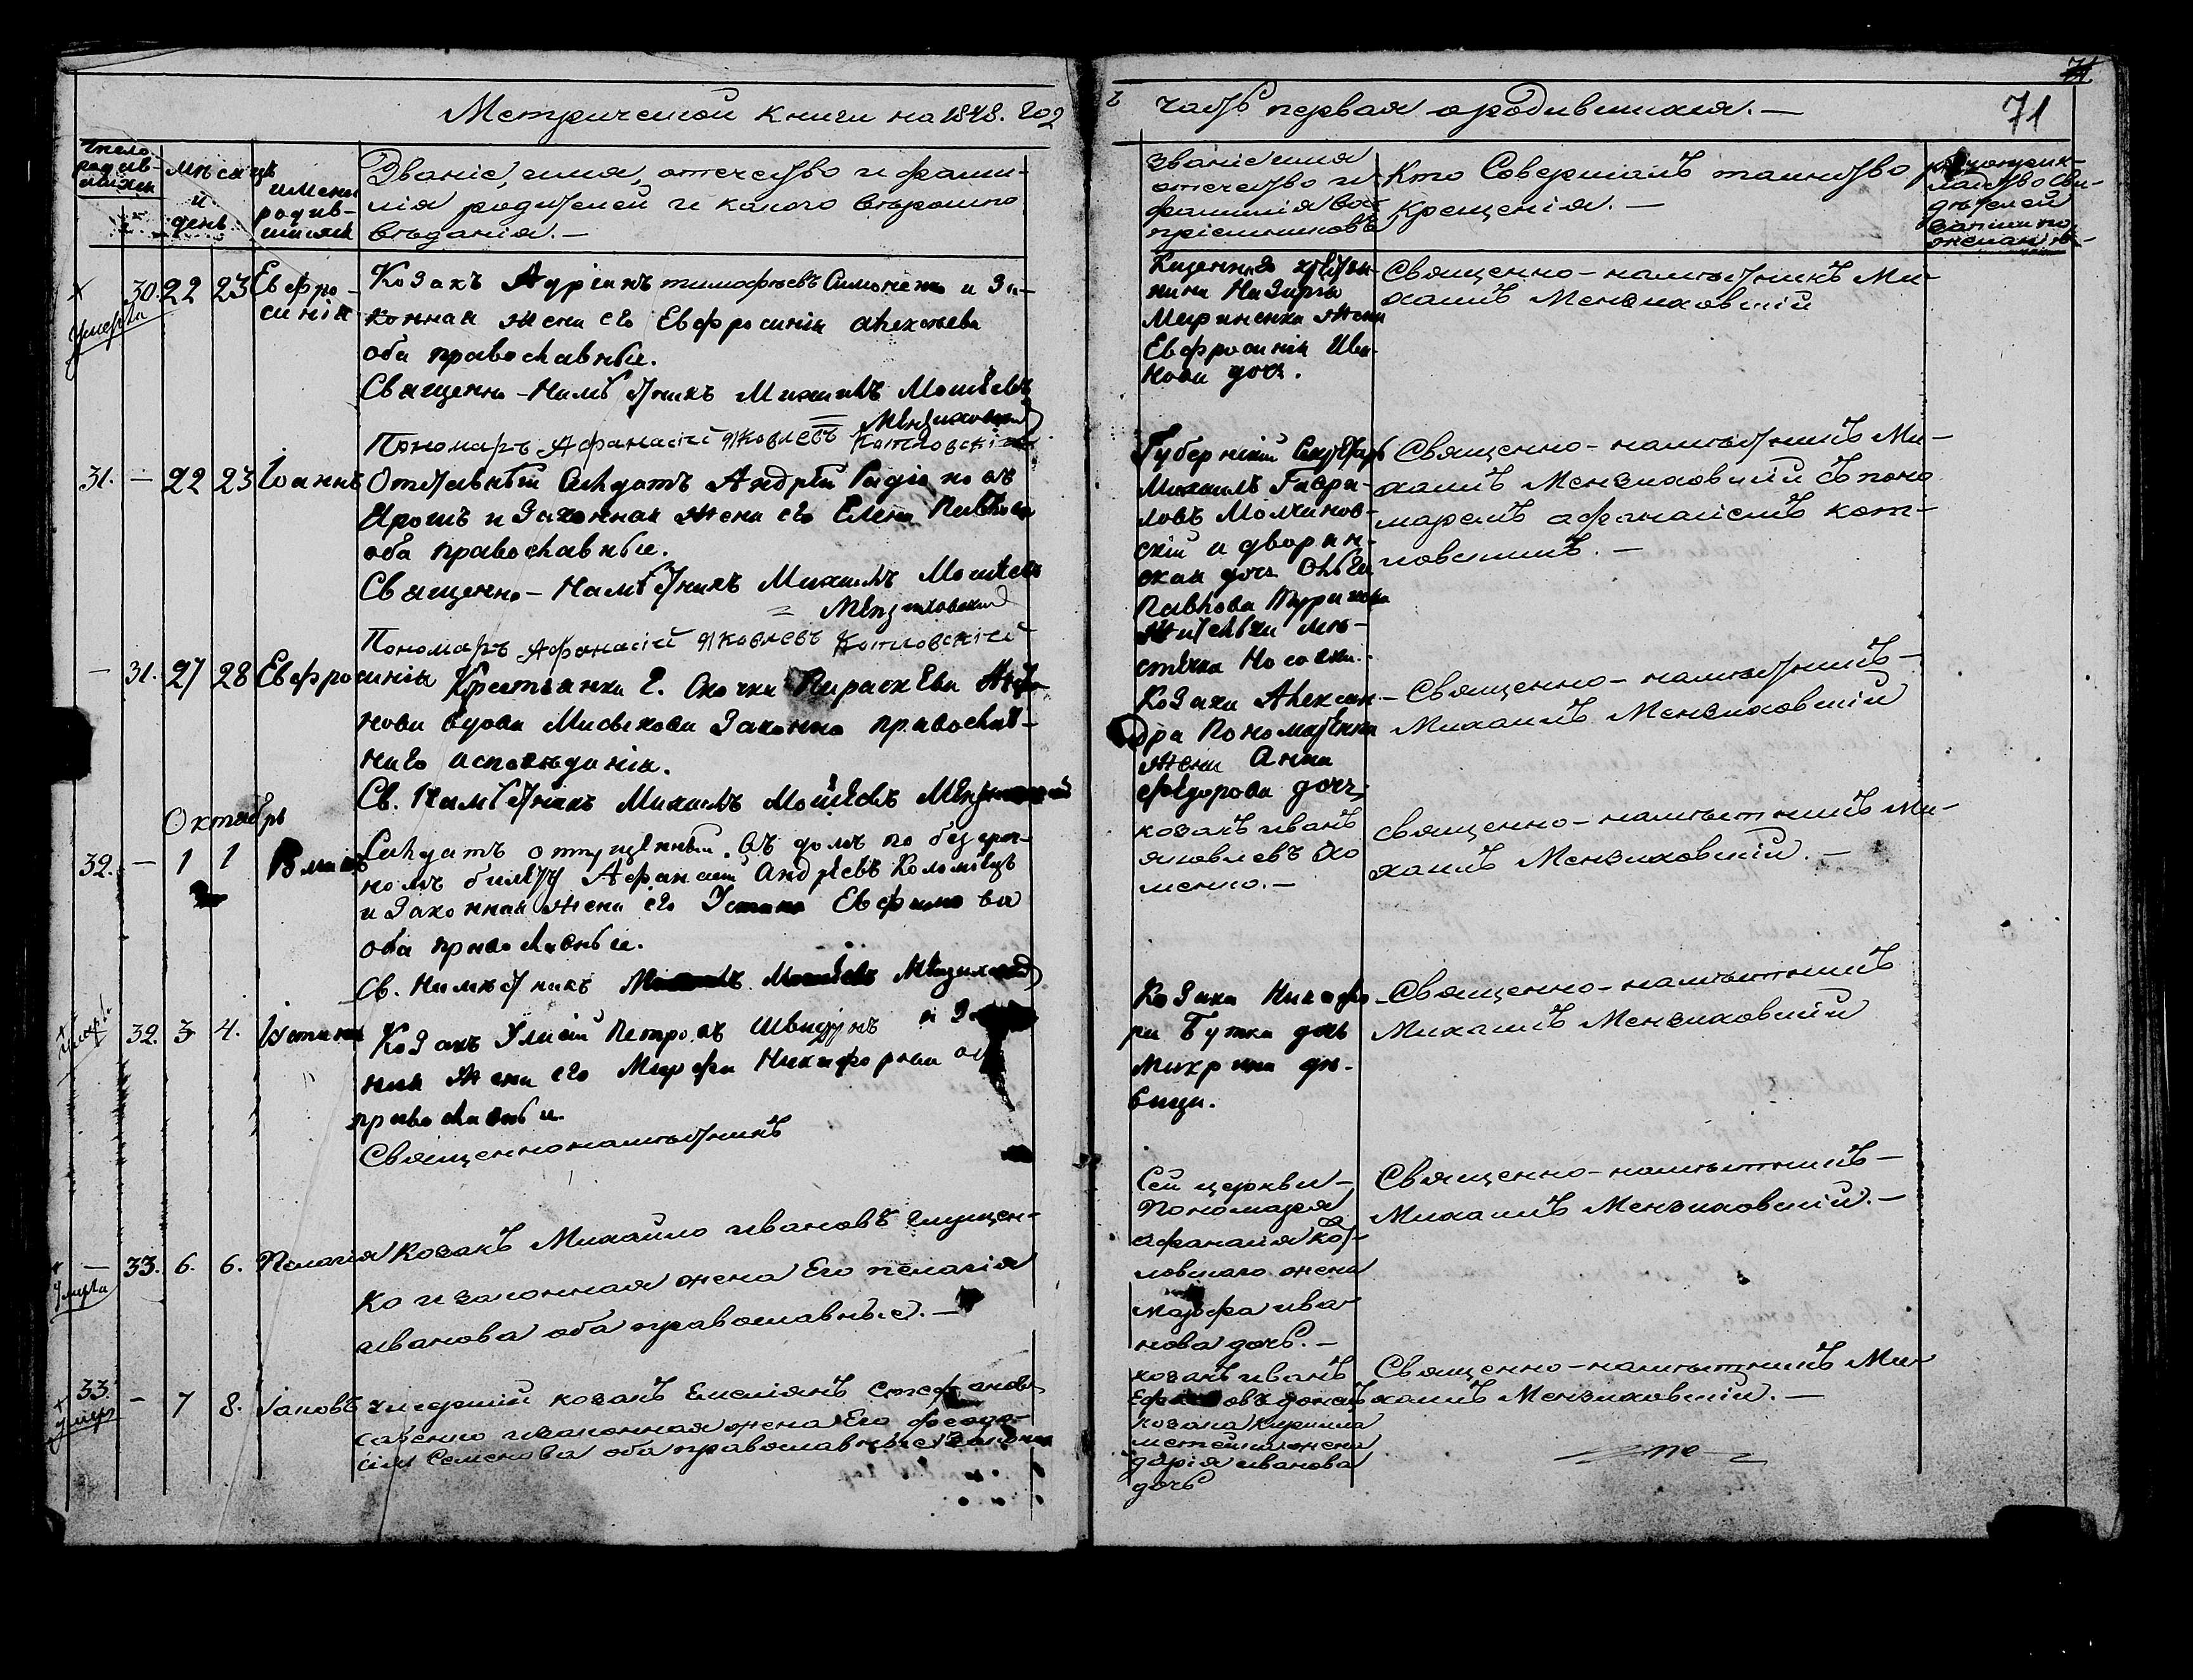 Метрической книги на 1848. год
ъ часть первая о родившихся. —
71
Число родив-
шихся
мѣсяцъ
и
день
имена
родив-
шихся
Званіе, имя, отечество и фами-
лія родителей и какого вѣроиспо
вѣданія. —
Званіе имя
отечество и
фамилія вос
пріемниковъ
Кто Совершалъ таинство
Крещенія. —
рукоприк-
ладство Сви-
дѣтелей
записи по
желанію
умерла
30. 22 23 Евфро-
синія
Козакъ Аурiянъ тимофѣевъ Симоненко и За-
конная жена его Евфросинія Алексѣева
оба православные.
Священно-Намѣстникъ Михаилъ Моисѣевъ
Мензиховскій
Пономаръ Афанасій Яковлевъ Котловскій
Казеннаго
Назарія
Мириненка жена
Евфросинія Ива-
нова дочь.
Священно-намѣстникъ Ми-
хаилъ Мензиховскій
31. — 22 23 Іоаннъ
Отставный Солдатъ Андрей Радіоновъ
Ярошъ и Законная жена его Елена Павлова
оба православные.
Священно-Намѣстникъ Михаилъ Моисѣевъ
Мензиховскій
Пономаръ Афанасій Яковлевъ Котловскій
Губернскій Секретарь
Михаилъ Гаври-
ловъ Молчанов-
скій и дворян-
ская дочь Ольга
Павлова
жителька мѣ-
стечка Носовки.
Священно-намѣстникъ Ми-
хаилъ Мензиховскій съ поно
маремъ афанасіемъ кот-
ловскимъ. —
— 31. 27 28 Евфросинія
Крестьянка Г. Скочка Параскева
нова вдова Миськова Законно православ-
наго исповѣданія.
Св. Намѣстникъ Михаилъ Моисѣевъ Мензиховскій
Козака Алексан-
дра Пономаренка
жена Анна
Федорова дочь
Священно-намѣстникъ
Михаилъ Мензиховскій
Октябрь
32. — 1 1
Солдатъ отпущенный въ домъ по безсроч-
номъ билету Афанасій Андреевъ Коломіецъ
и Законная жена его Устина Евфимова
оба православные.
Св. Намѣстникъ Михаилъ Моисѣевъ Мензиховскій
козакъ иванъ
яковлевъ Хо
менко. —
священно-намѣстникъ Ми-
хаилъ Мензиховскій. —
32. 3 4. Устина
Козакъ Улисій Петровъ Швидунъ и За
ная жена его Марфа Никифорова
православные
Священнонамѣстникъ
Козака Никифо
ра Бутка дочь
Макрина дѣ-
вица.
Священно-намѣстникъ
Михаилъ Мензиховскій
умерла
— 33. 6. 6. Пелагія
Козакъ Михайло ивановъ Глущен-
ко и законная жена Его пелагія
иванова оба православные. —
Сей церкви
Пономаря
афанасія Кот-
ловскаго жена
марфа ива-
нова дочь. —
Священно-намѣстникъ
Михаилъ Мензиховскій. —
умеръ
33. — 7 8. Іаковъ
умершій козакъ Емеліянъ Стефановъ
Савенко и законная жена Его феодо-
сія Семенова оба православные
козакъ иванъ
козака кирилла
жена
дарія иванова
дочь
Священно-намѣстникъ Ми-
хаилъ Мензиховскій. —